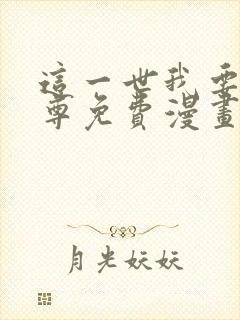 這一世我要
尊免費漫畫
月光妖妖